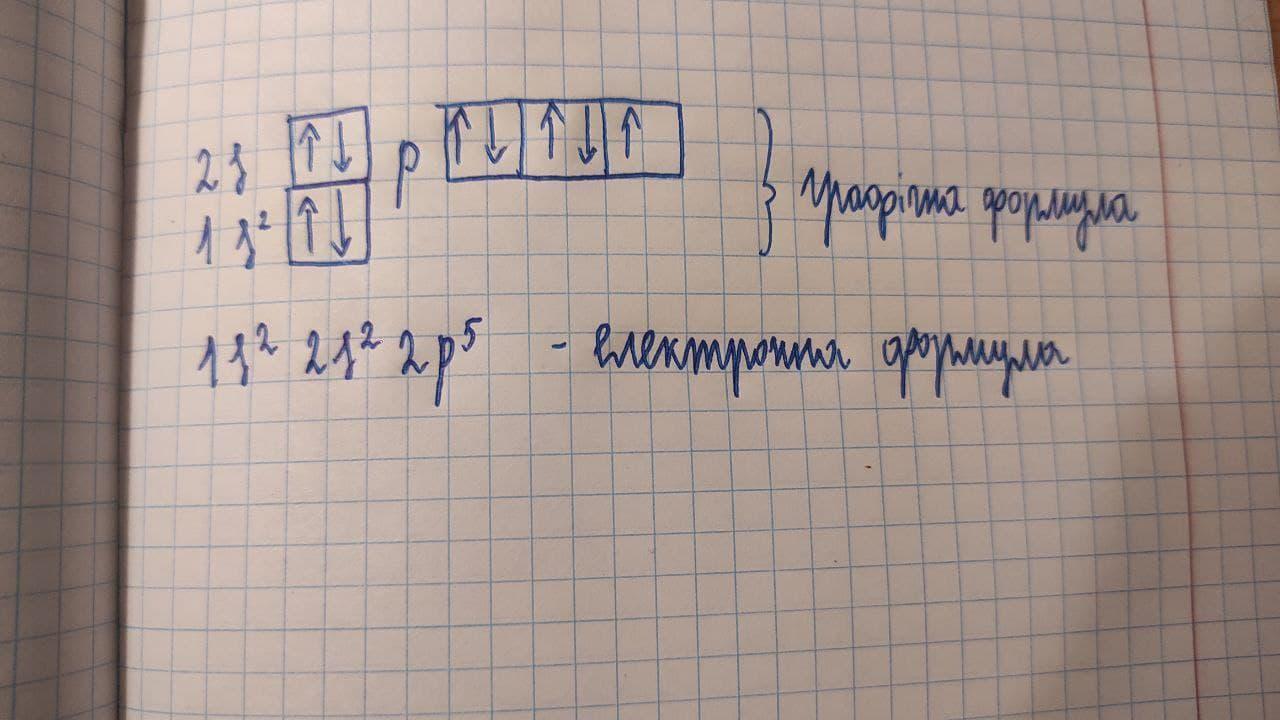 2s ↑↓ p ↑↓ ↑↓ ↑ } графічна формула
1s² ↑↓
1s² 2s² 2p⁵ - електронна формула